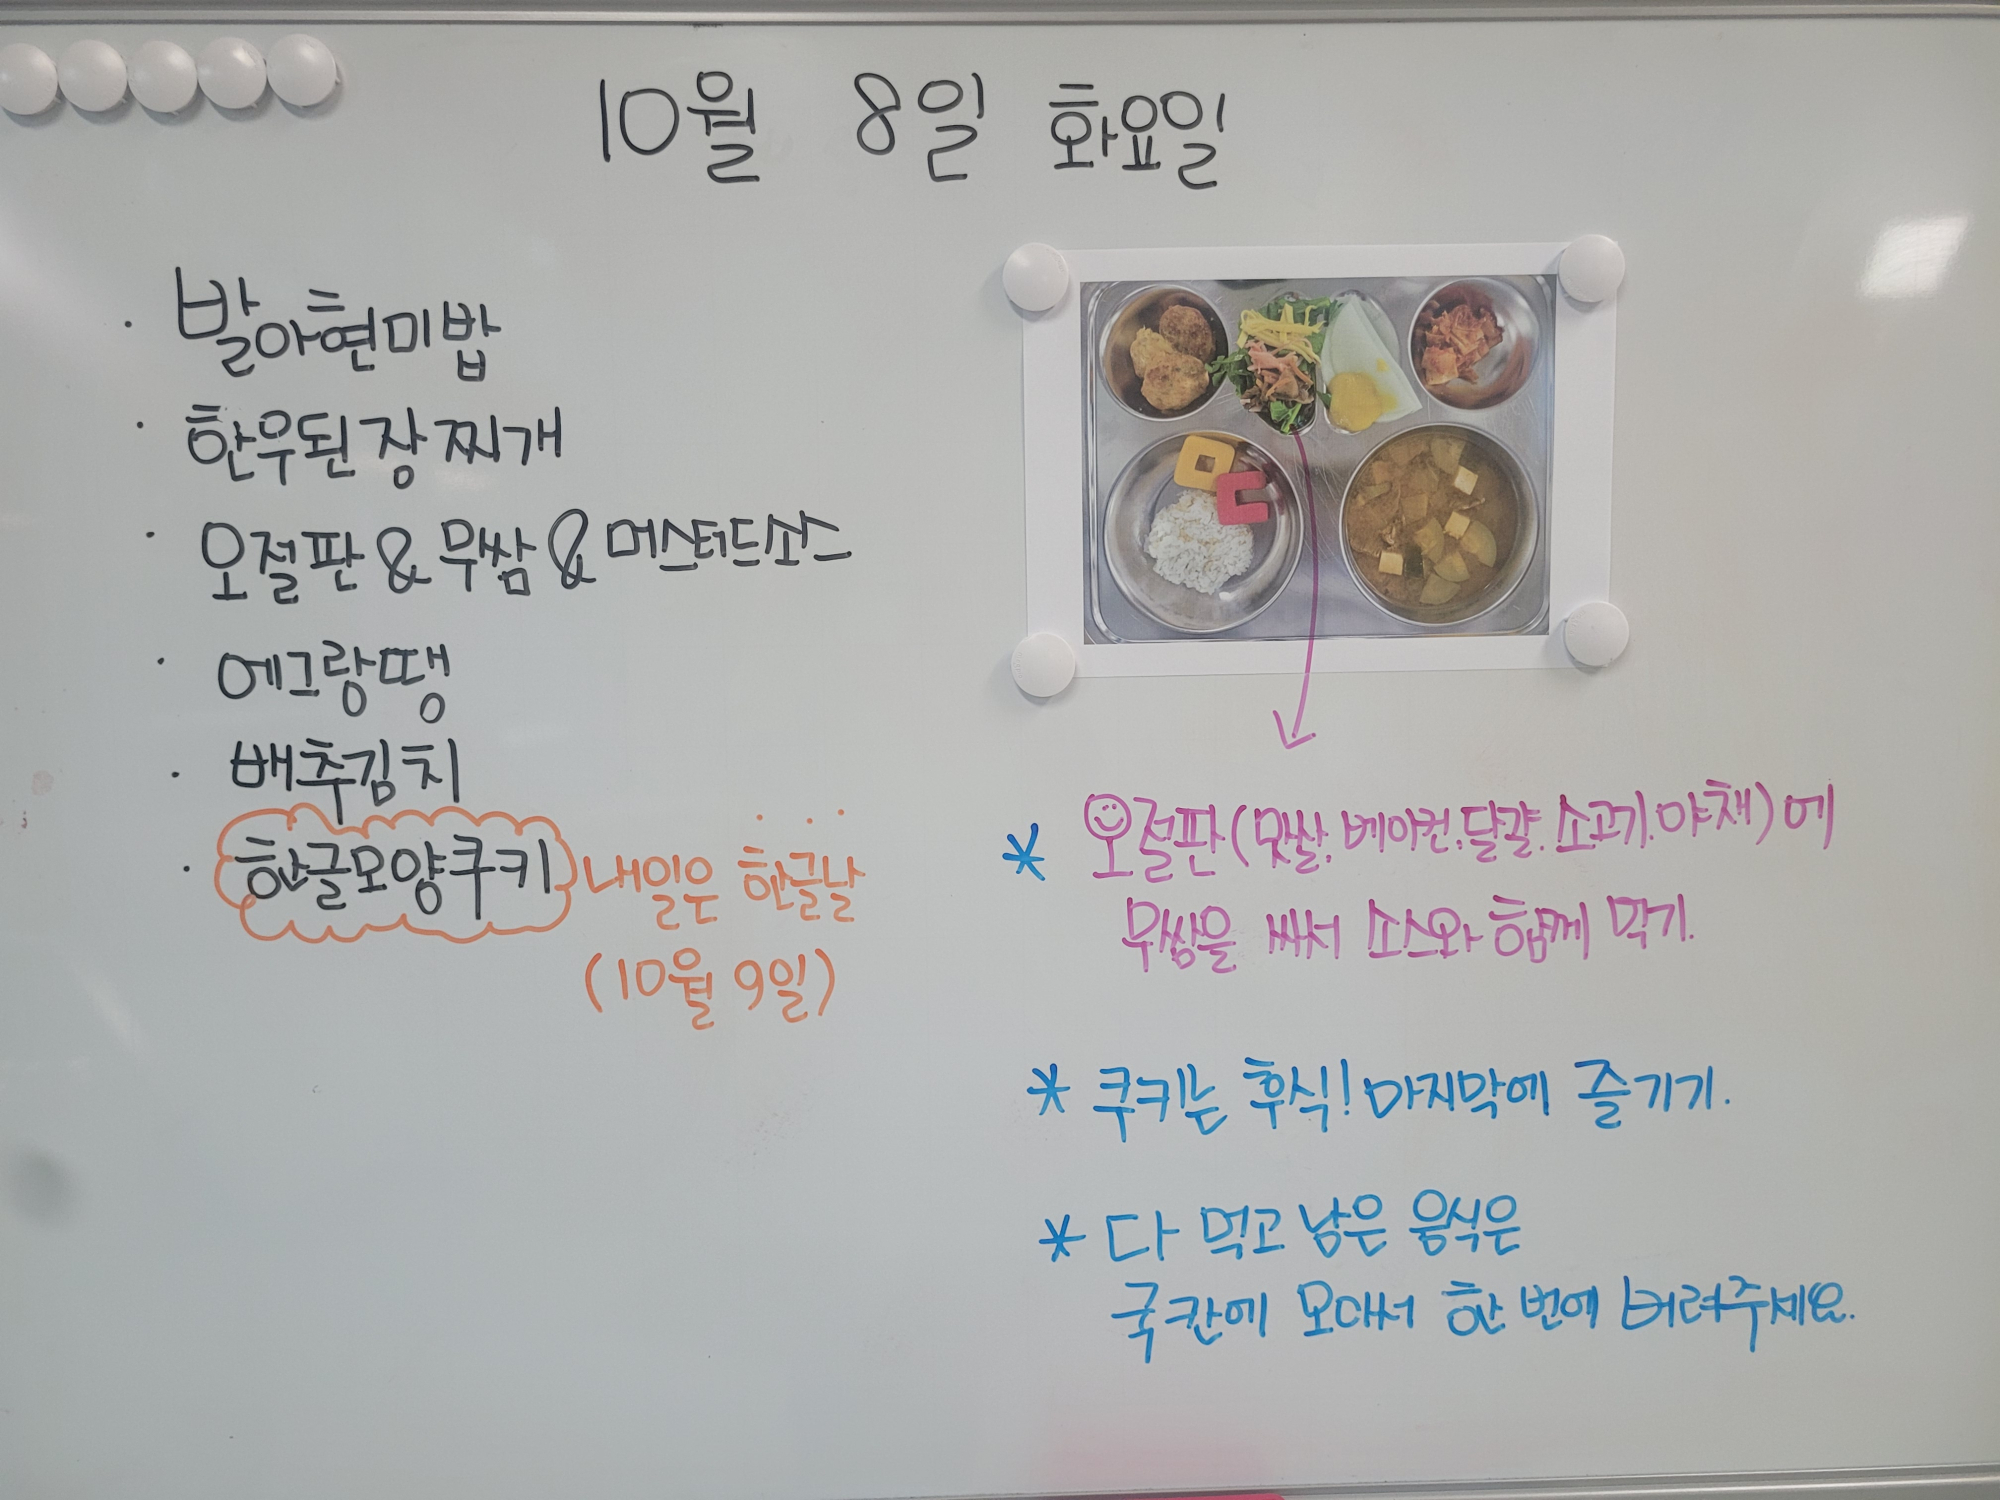 10월 8일 화요일
· 발아현미밥
· 한우된장찌개
· 오절판 & 무쌈 & 머스터드소스
· 에그랑땡
· 배추김치
· 한글모양쿠키 내일은 한글날
(10월 9일)
ㅁㄷ
* 오절판(맛살.베이컨.달걀.소고기.야채)에
무쌈을 싸서 소스와 함께 먹기.
* 쿠키는 후식! 마지막에 즐기기.
* 다 먹고 남은 음식은
국칸에 모아서 한 번에 버려주세요.